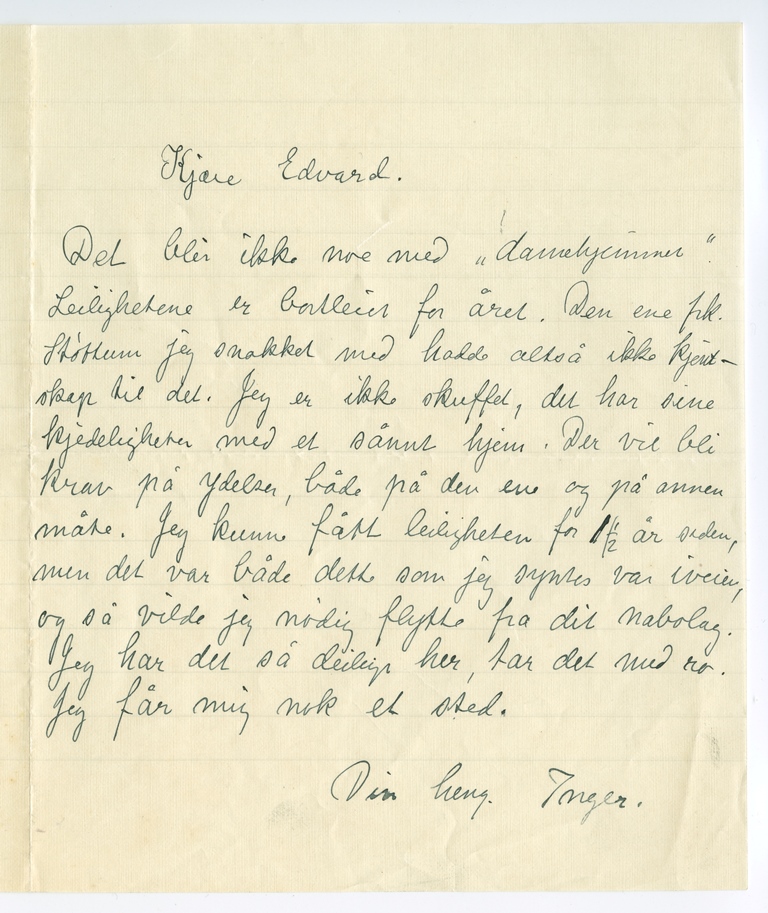 Kjære Edvard.
Det blir ikke noe med „damehjemmet“.
Leilighetene er bortleiet for året. Den ene frk.
Støttum jeg snakket med hadde altså ikke kjend-
skap til det. Jeg er ikke skuffet, det har sine
kjedeligheter med et sånnt hjem. Der vil bli
krav på ydelser, både på den ene og på annen
måte. Jeg kunne fått leiligheten for 1½ år siden,
men det var både dette som jeg syntes var iveien,
og så vilde jeg nødig flytte fra dit nabolag.
Jeg har det så deilig her, tar det med ro.
Jeg får mig nok et sted.
Din heng. Inger.